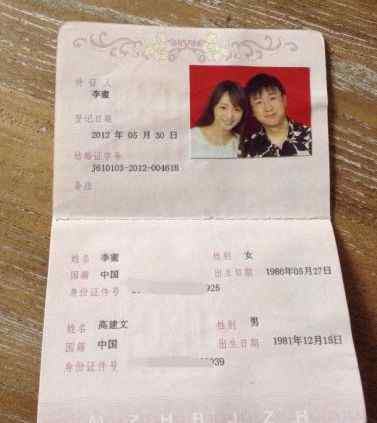 持证人
李蜜
登记日期
2012 年 05 月 30 日
结婚证字号
J610103-2012-004618
备注
姓名 李蜜 性别 女
国籍 中国 出生日期 1986年05月27日
身份证件号 925
姓名 高建文 性别 男
国籍 中国 出生日期 1981年12月15日
身份证件号 939